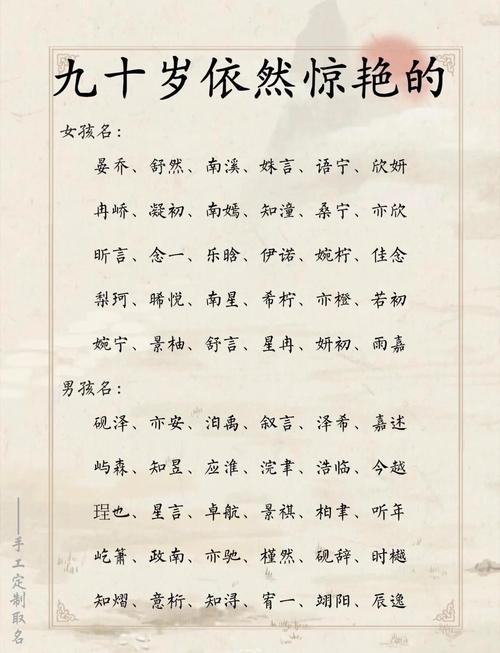 九十岁依然惊艳的
女孩名：
晏乔、舒然、南溪、姝言、语宁、欣妍
冉峤、凝初、南嫣、知潼、桑宁、亦欣
昕言、念一、乐晗、伊诺、婉柠、佳念
梨珂、晞悦、南星、希柠、亦橙、若初
婉宁、景柚、舒言、星冉、妍初、雨嘉
男孩名：
砚泽、亦安、泊禹、叙言、泽希、嘉述
屿森、知昱、应淮、浣聿、浩临、今越
珵也、星言、卓航、景祺、柏聿、听年
屹箫、政南、亦驰、槿然、砚辞、时樾
知熠、意桁、知浔、宥一、翊阳、辰逸
——手工定制取名